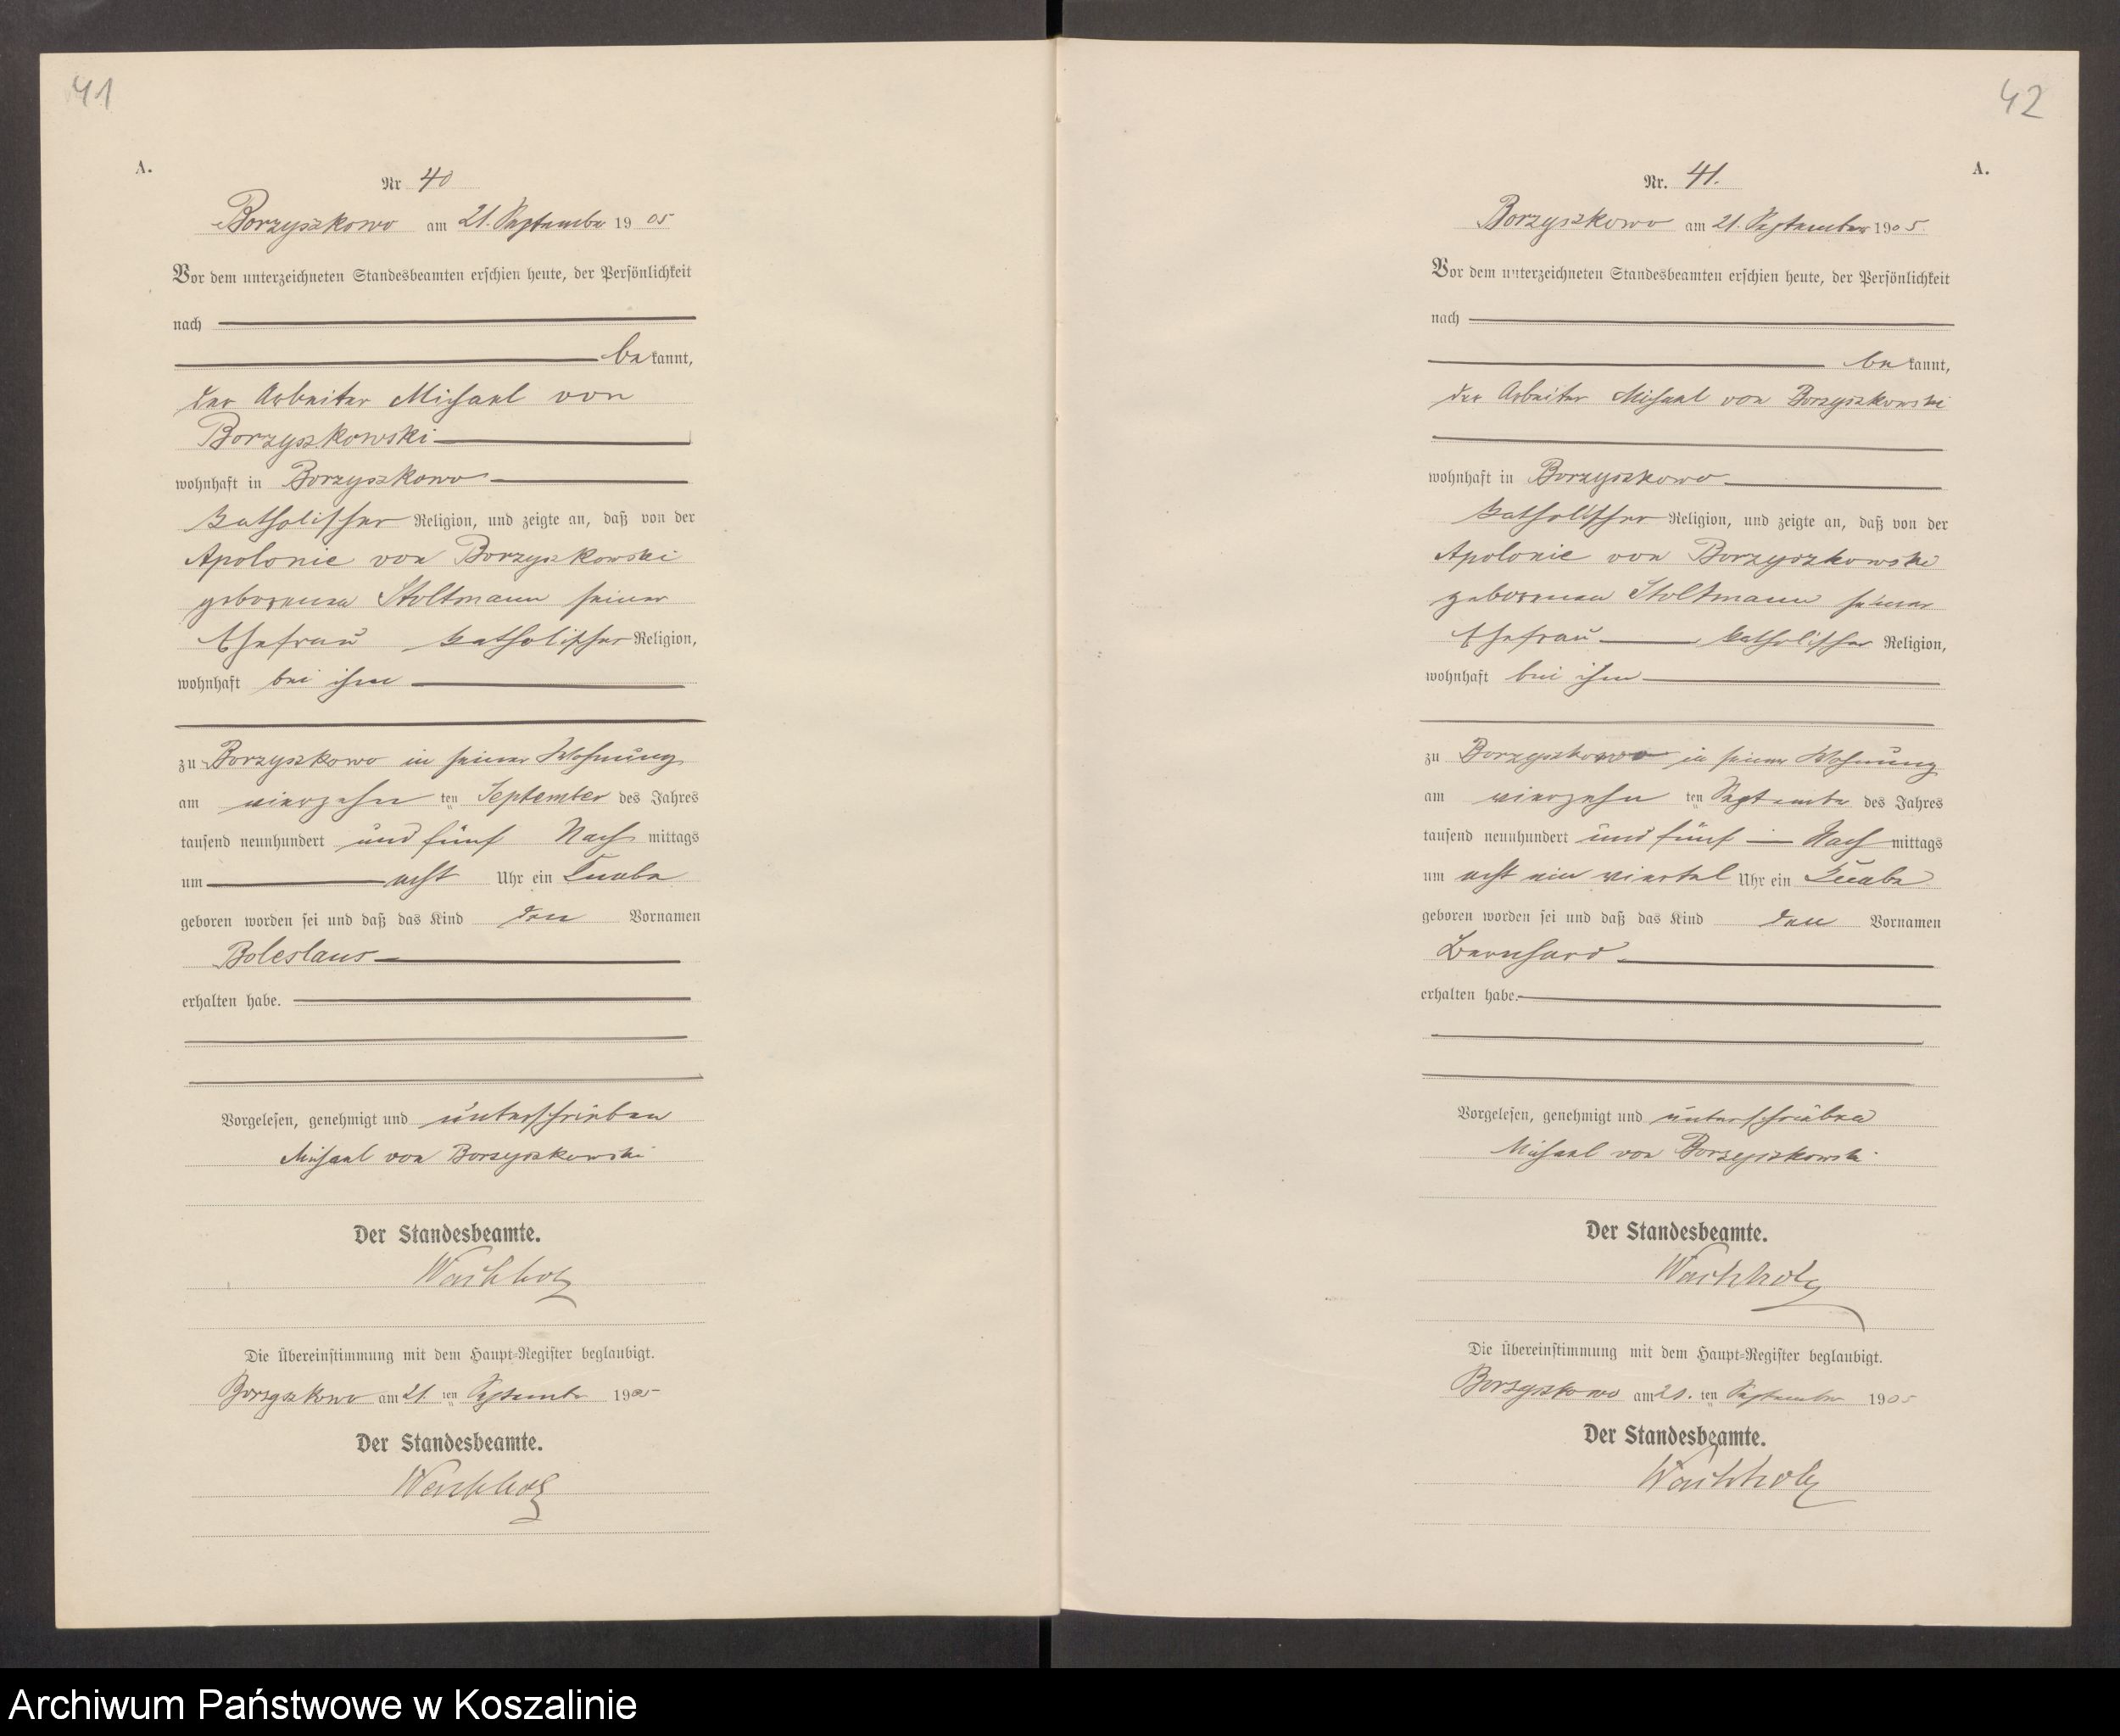 41
A.
Nr 40
Borzyszkowo am 21. September 1905
Vor dem unterzeichneten Standesbeamten erschien heute, der Persönlichkeit
nach
bekannt,
der Arbeiter Michael von
Borzyszkowski
wohnhaft in Borzyszkowo
katholischer Religion, und zeigte an, daß von der
Apolonie von Borzyszkowski
geborenen Stoltmann seiner
Ehefrau katholischer Religion,
wohnhaft bei ihm
zu Borzyszkowo in seiner Wohnung
am vierzehn ten September des Jahres
tausend neunhundert und fünf Nach mittags
um acht Uhr ein Knabe
geboren worden sei und daß das Kind den Vornamen
Boleslaus
erhalten habe.
Vorgelesen, genehmigt und unterschrieben
Michael von Borzyszkowski
Der Standesbeamte.
Wachholz
Die Übereinstimmung mit dem Haupt-Register beglaubigt.
Borzyszkowo am 21. ten September 1905
Der Standesbeamte.
Wachholz
42
A.
Nr. 41.
Borzyszkowo am 21. September 1905.
Vor dem unterzeichneten Standesbeamten erschien heute, der Persönlichkeit
nach
bekannt,
der Arbeiter Michael von Borzyszkowski
wohnhaft in Borzyszkowo
katholischer Religion, und zeigte an, daß von der
Apolonie von Borzyszkowski
geborenen Stoltmann seiner
Ehefrau katholischer Religion,
wohnhaft bei ihm
zu Borzyszkowo in seiner Wohnung
am vierzehn ten September des Jahres
tausend neunhundert und fünf Nach mittags
um acht ein viertel Uhr ein Knabe
geboren worden sei und daß das Kind den Vornamen
Bernhard
erhalten habe.
Vorgelesen, genehmigt und unterschrieben
Michael von Borzyszkowski
Der Standesbeamte.
Wachholz
Die Übereinstimmung mit dem Haupt-Register beglaubigt.
Borzyszkowo am 21. ten September 1905
Der Standesbeamte.
Wachholz
Archiwum Państwowe w Koszalinie